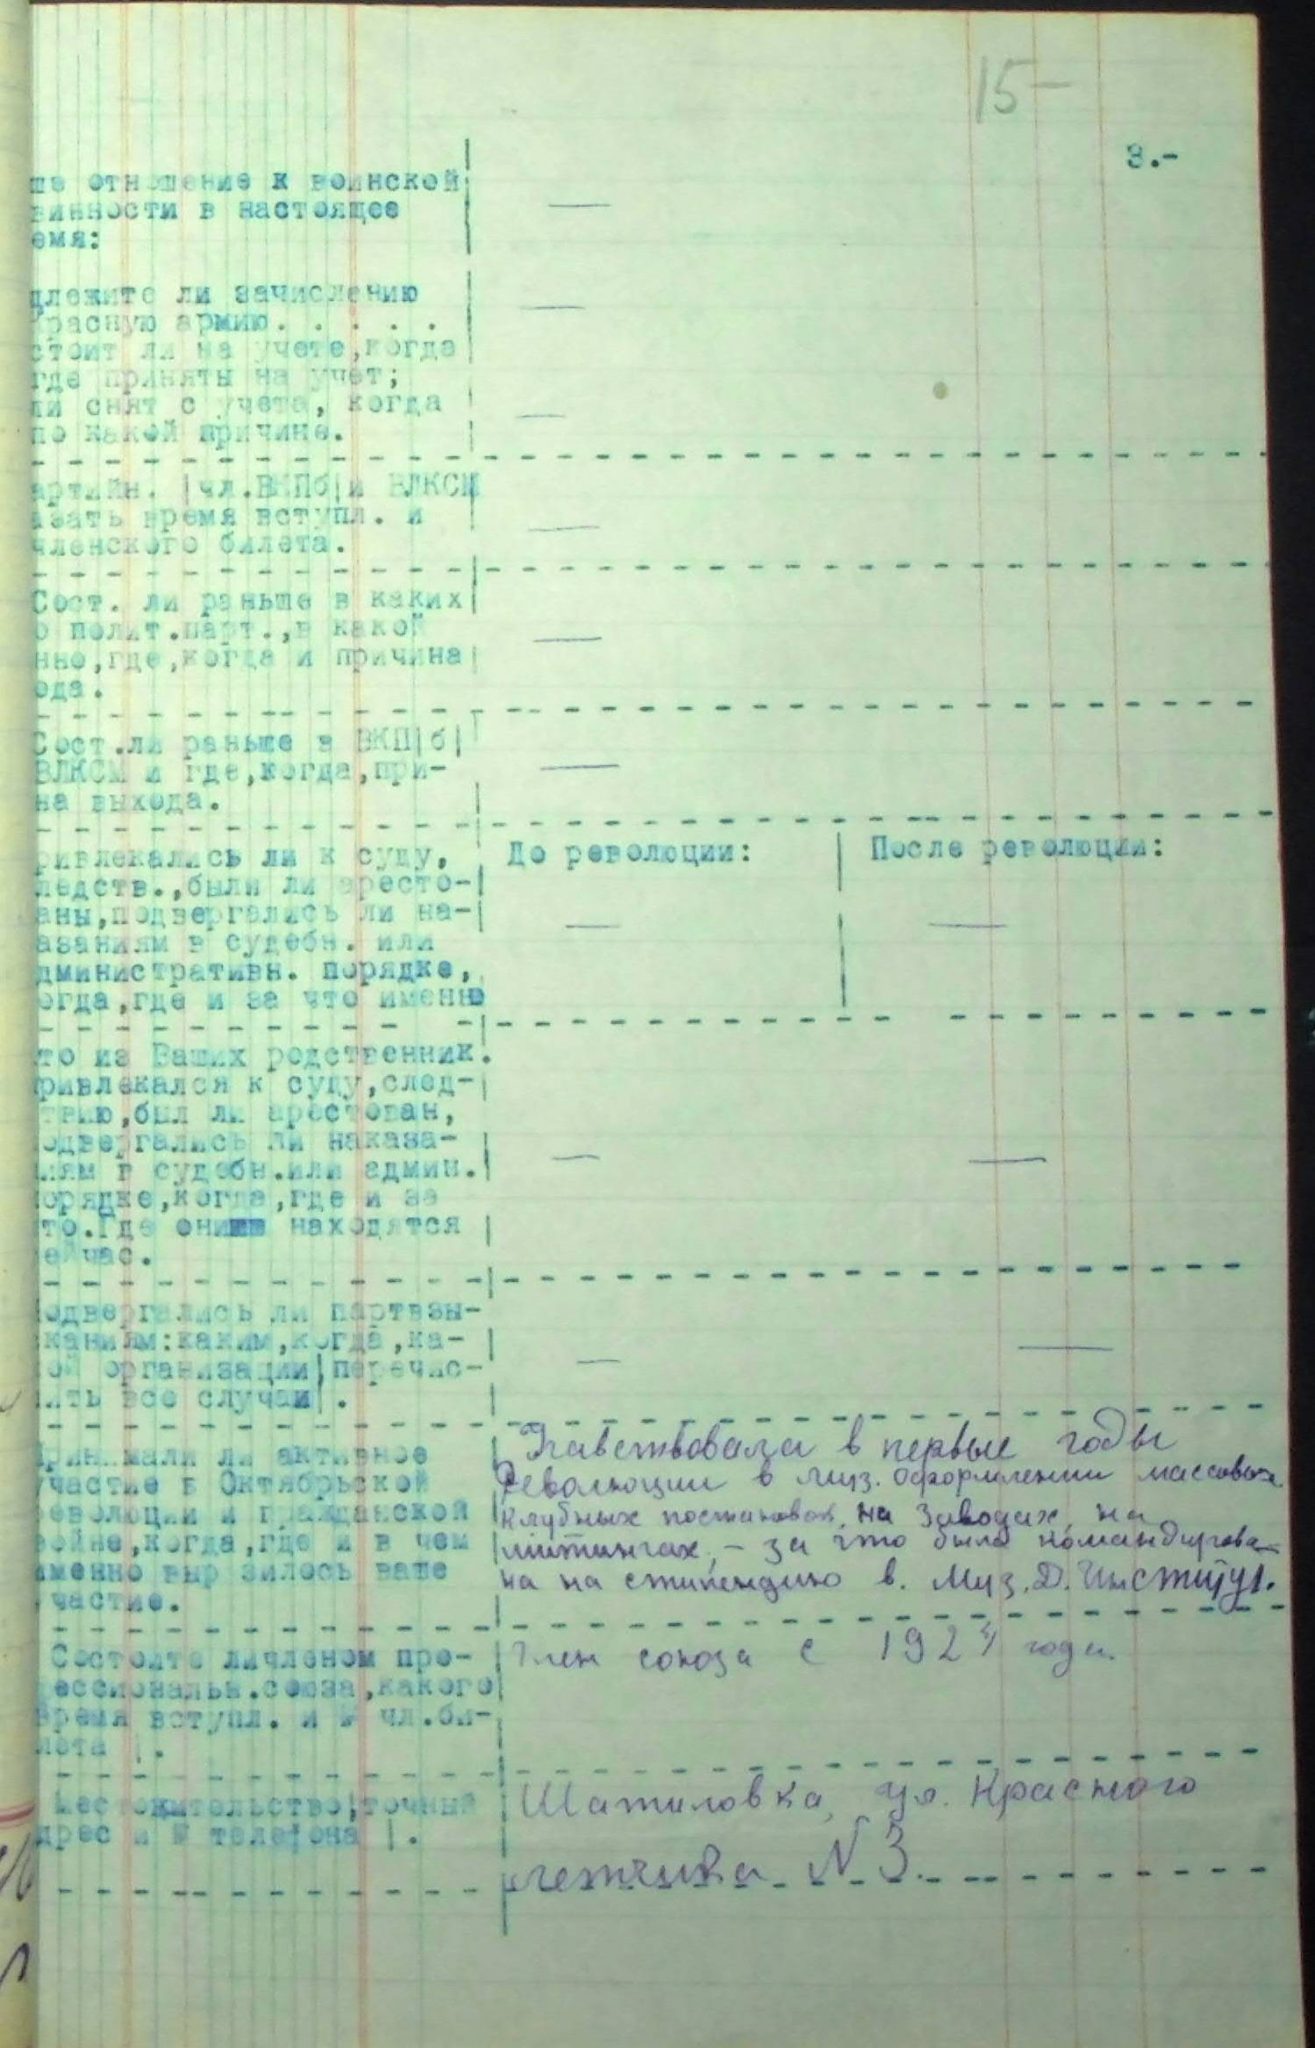 15-
3.-
ше отношение к воинской
винности в настоящее
емя:
длежите ли зачислению
красную армию. . . . .
стоит ли на учете,когда
где приняты на учет;
ли снят с учета, когда
по какой причине.
артийн. |чл.ВКПб|и ВЛКСМ
азать время вступл. и
членского билета.
Сост. ли раньше в каких
о полит.парт.,в какой
нно,где,когда и причина
ода.
Сост.ли раньше в ВКП|б|
ВЛКСМ и где,когда,при-
на выхода.
ривлекались ли к суду,
До революции:
После революции:
ледств.,были ли аресто-
аны,подвергались ли на-
азаниям в судебн. или
дминистративн. порядке,
огда,где и за что именно
то из Ваших родственник.
ривлекался к суду,след-
твию,был ли арестован,
одвергались ли наказа-
иям в судебн.или админ.
орядке,когда,где и за
то.Где они находятся
ейчас.
одвергались ли партвзы-
каниям:каким,когда,ка-
ой организации|перечис-
ить все случаи|.
Принимали ли активное
участие в Октябрьской
революции и гражданской
войне,когда,где и в чем
именно выр зилось ваше
участие.
Участвовала в первые годы
Революции в муз. оформлении массовых
клубных постановок, на заводах, на
митингах, - за что была командирова-
на на стипендию в. Муз. Д. Институт.
Состоите личленом про-
фессиональн.союза,какого
время вступл. и № чл.би-
лета |.
Член союза с 1924 года.
Местожительство|точный
адрес и № телефона |.
Шатиловка, ул. Красного
летчика N 3.